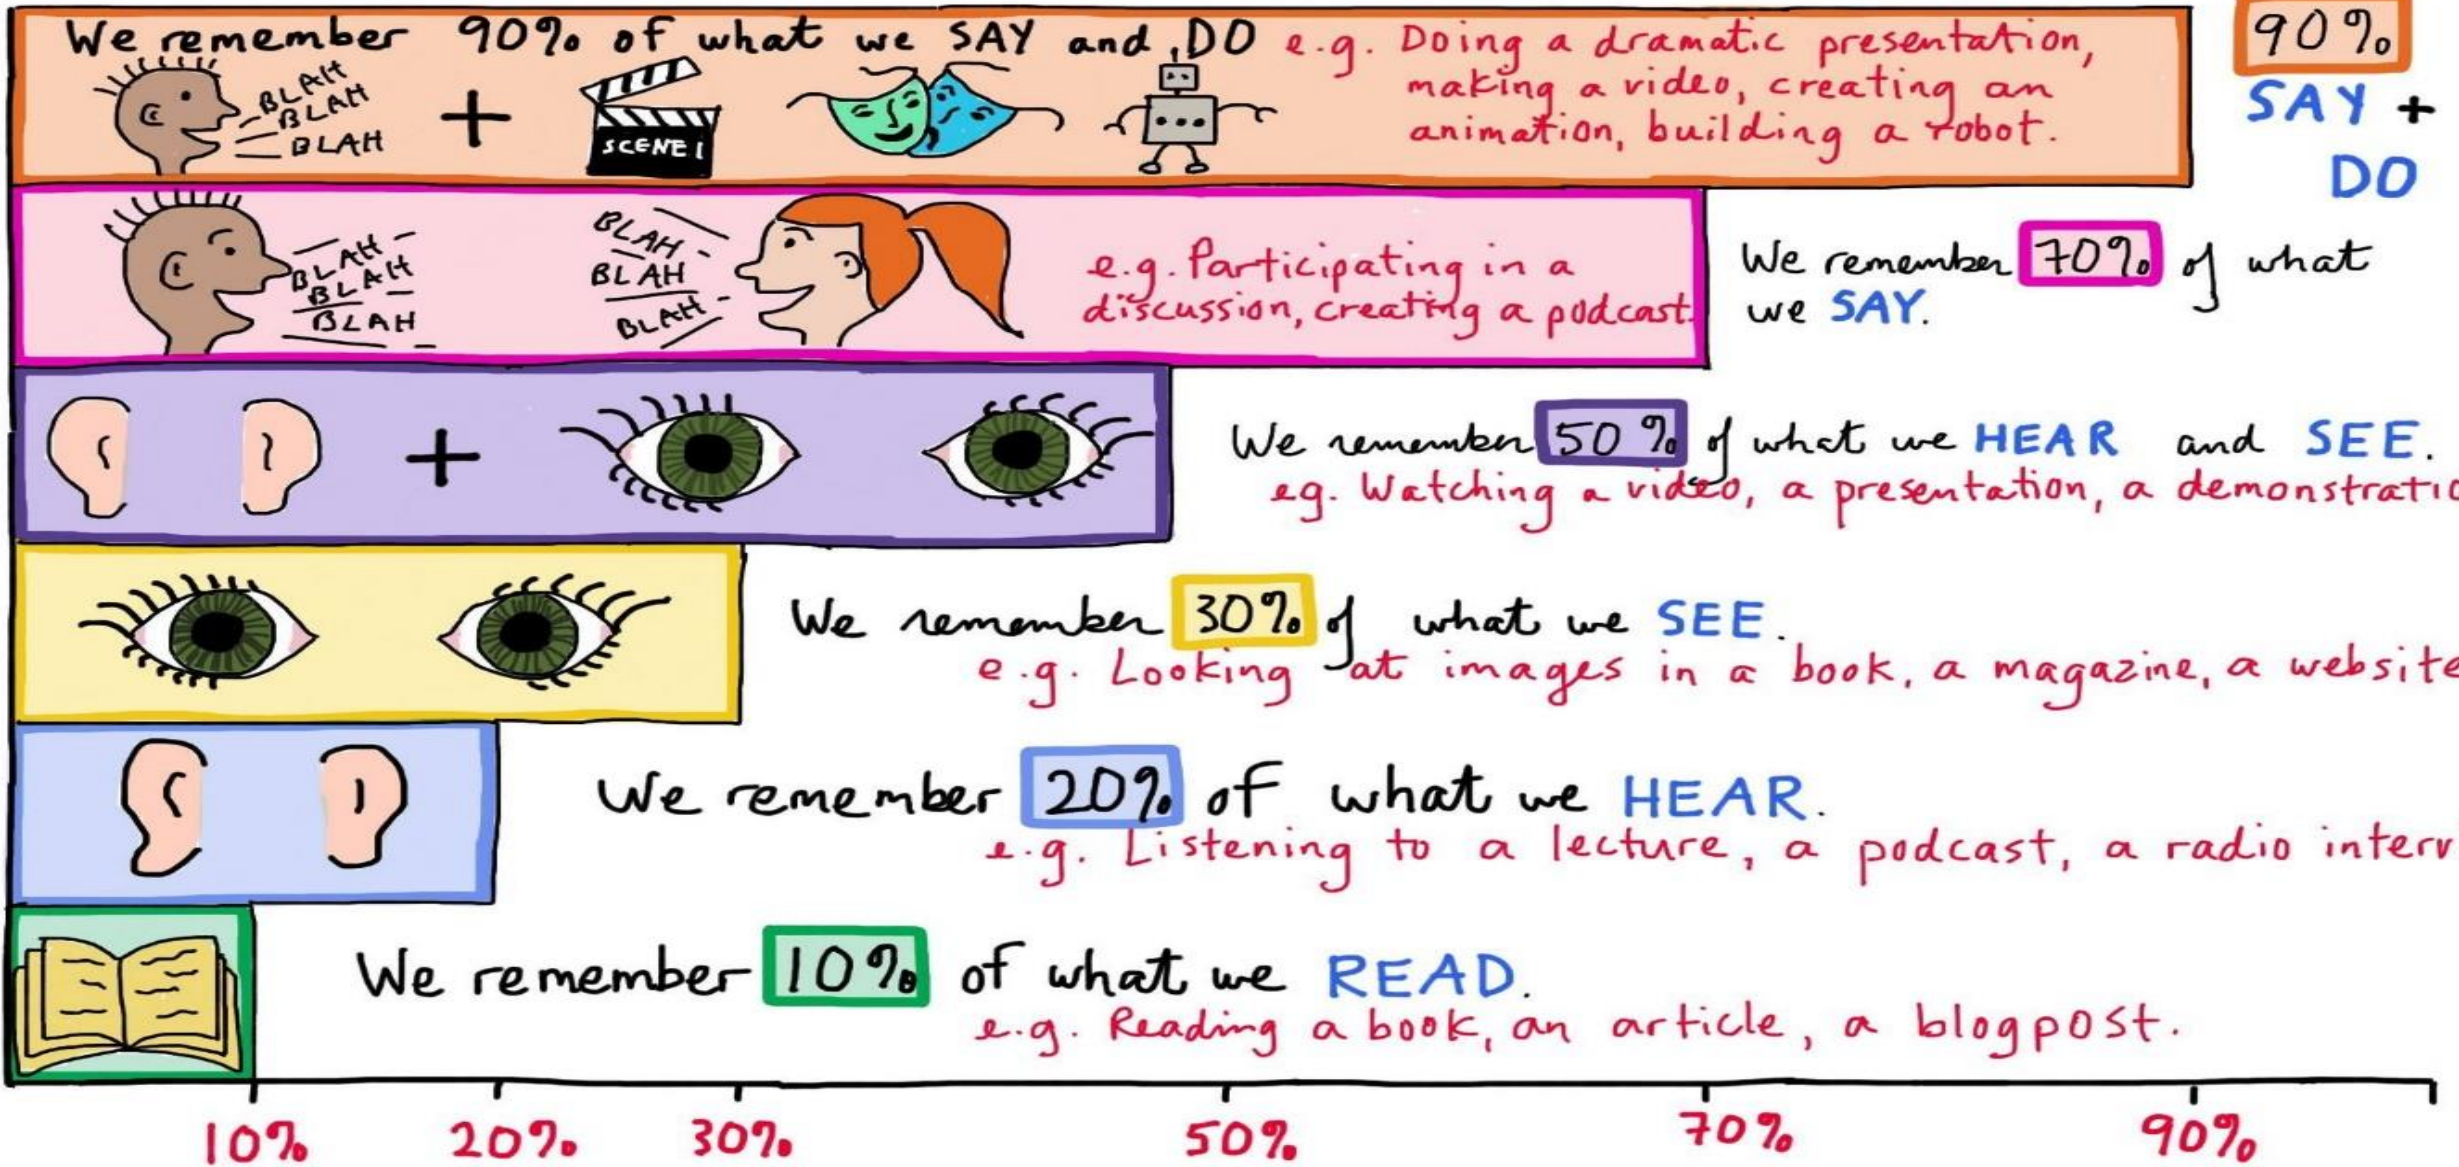 We remember 90% of what we SAY and DO e.g. Doing a dramatic presentation,
making a video, creating an
animation, building a robot.
BLAH
BLAH
BLAH
+
SCENE 1
90%
SAY +
DO
BLAH
BLAH
BLAH
BLAH
BLAH
BLAH
e.g. Participating in a
discussion, creating a podcast.
We remember 70% of what
we SAY.
+
We remember 50% of what we HEAR and SEE.
eg. Watching a video, a presentation, a demonstratio
We remember 30% of what we SEE.
e.g. Looking at images in a book, a magazine, a website
We remember 20% of what we HEAR.
e.g. Listening to a lecture, a podcast, a radio interv
We remember 10% of what we READ.
e.g. Reading a book, an article, a blogpost.
10% 20% 30% 50% 70% 90%